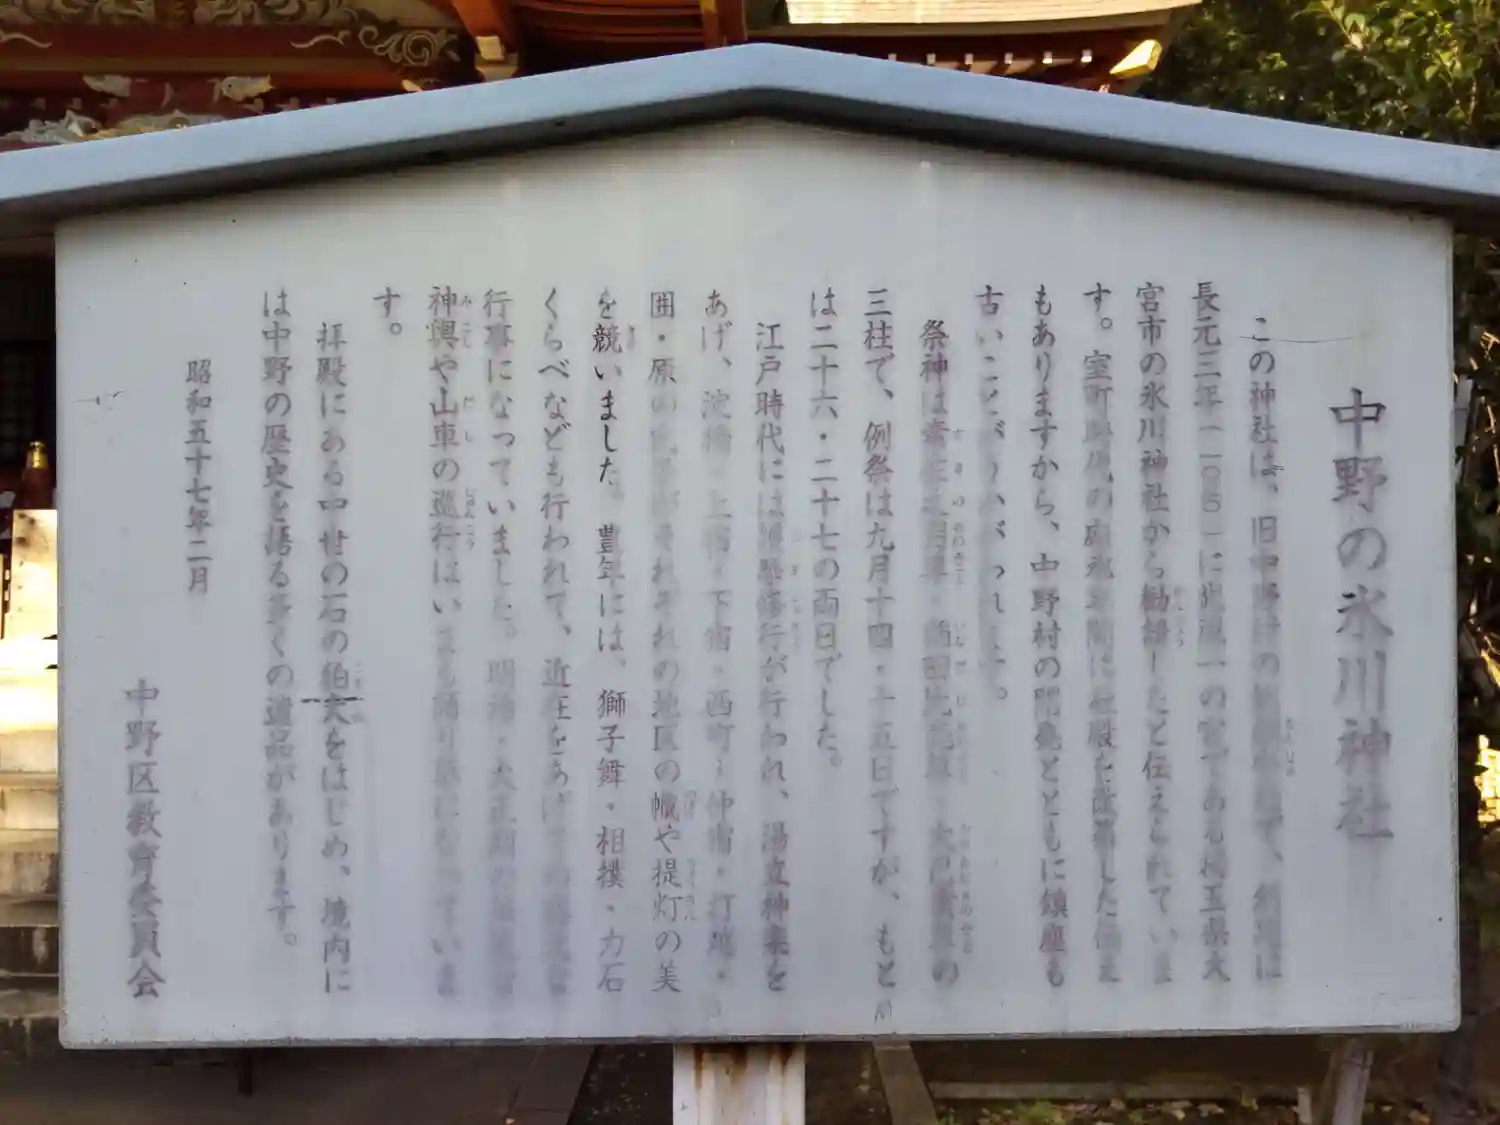 中野の氷川神社
この神社は、旧中野村の総鎮守社で、創建は
長元三年(一〇三〇)に武蔵一の宮である埼玉県大
宮市の氷川神社から勧請したと伝えられていま
す。室町時代の応永年間には社殿を改築した伝え
もありますから、中野村の開発とともに鎮座も
古いことがうかがわれます。
祭神は素佐之男尊・稲田比売尊・大己貴尊の
三柱で、例祭は九月十四・十五日ですが、もと
は二十六・二十七の両日でした。
江戸時代には が行われ、湯立神楽を
あげ、淀橋・上宿・下宿・西町・仲宿・打越・
囲・原の がそれぞれの地区の幟や提灯の美
を競いました。豊年には、獅子舞・相撲・力石
くらべなども行われて、近在をあげての
行事になっていました。明治・大正期の
神輿や山車の巡行はいまも語り草になっていま
す。
拝殿にある中世の石の狛犬をはじめ、境内に
は中野の歴史を語る多くの遺品があります。
昭和五十七年二月
中野区教育委員会